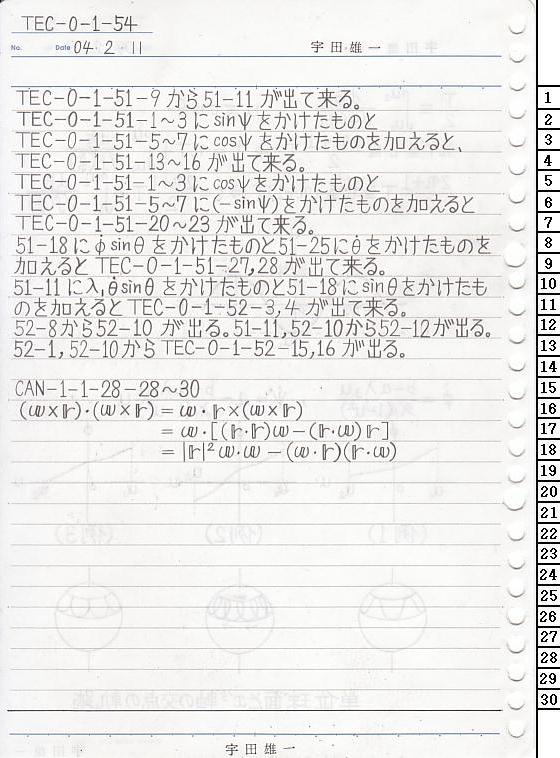 TEC-0-1-54
No.
Date 04・2・11
宇田雄一
TEC-0-1-51-9 から 51-11 が出て来る。
TEC-0-1-51-1~3 に sinψ をかけたものと
TEC-0-1-51-5~7 に cosψ をかけたものを加えると、
TEC-0-1-51-13~16 が出て来る。
TEC-0-1-51-1~3 に cosψ をかけたものと
TEC-0-1-51-5~7 に (-sinψ) をかけたものを加えると
TEC-0-1-51-20~23 が出て来る。
51-18 に φ̇ sinθ をかけたものと 51-25 に θ̇ をかけたものを
加えると TEC-0-1-51-27, 28 が出て来る。
51-11 に λ, θ̇ sinθ をかけたものと 51-18 に sinθ をかけたも
のを加えると TEC-0-1-52-3, 4 が出て来る。
52-8 から 52-10 が出る。51-11, 52-10 から 52-12 が出る。
52-1, 52-10 から TEC-0-1-52-15, 16 が出る。
CAN-1-1-28-28~30
(𝕨×𝕣)・(𝕨×𝕣) = 𝕨・𝕣×(𝕨×𝕣)
= 𝕨・[(𝕣・𝕣)𝕨-(𝕣・𝕨)𝕣]
= |𝕣|²𝕨・𝕨-(𝕨・𝕣)(𝕣・𝕨)
宇田雄一
1
2
3
4
5
6
7
8
9
10
11
12
13
14
15
16
17
18
19
20
21
22
23
24
25
26
27
28
29
30